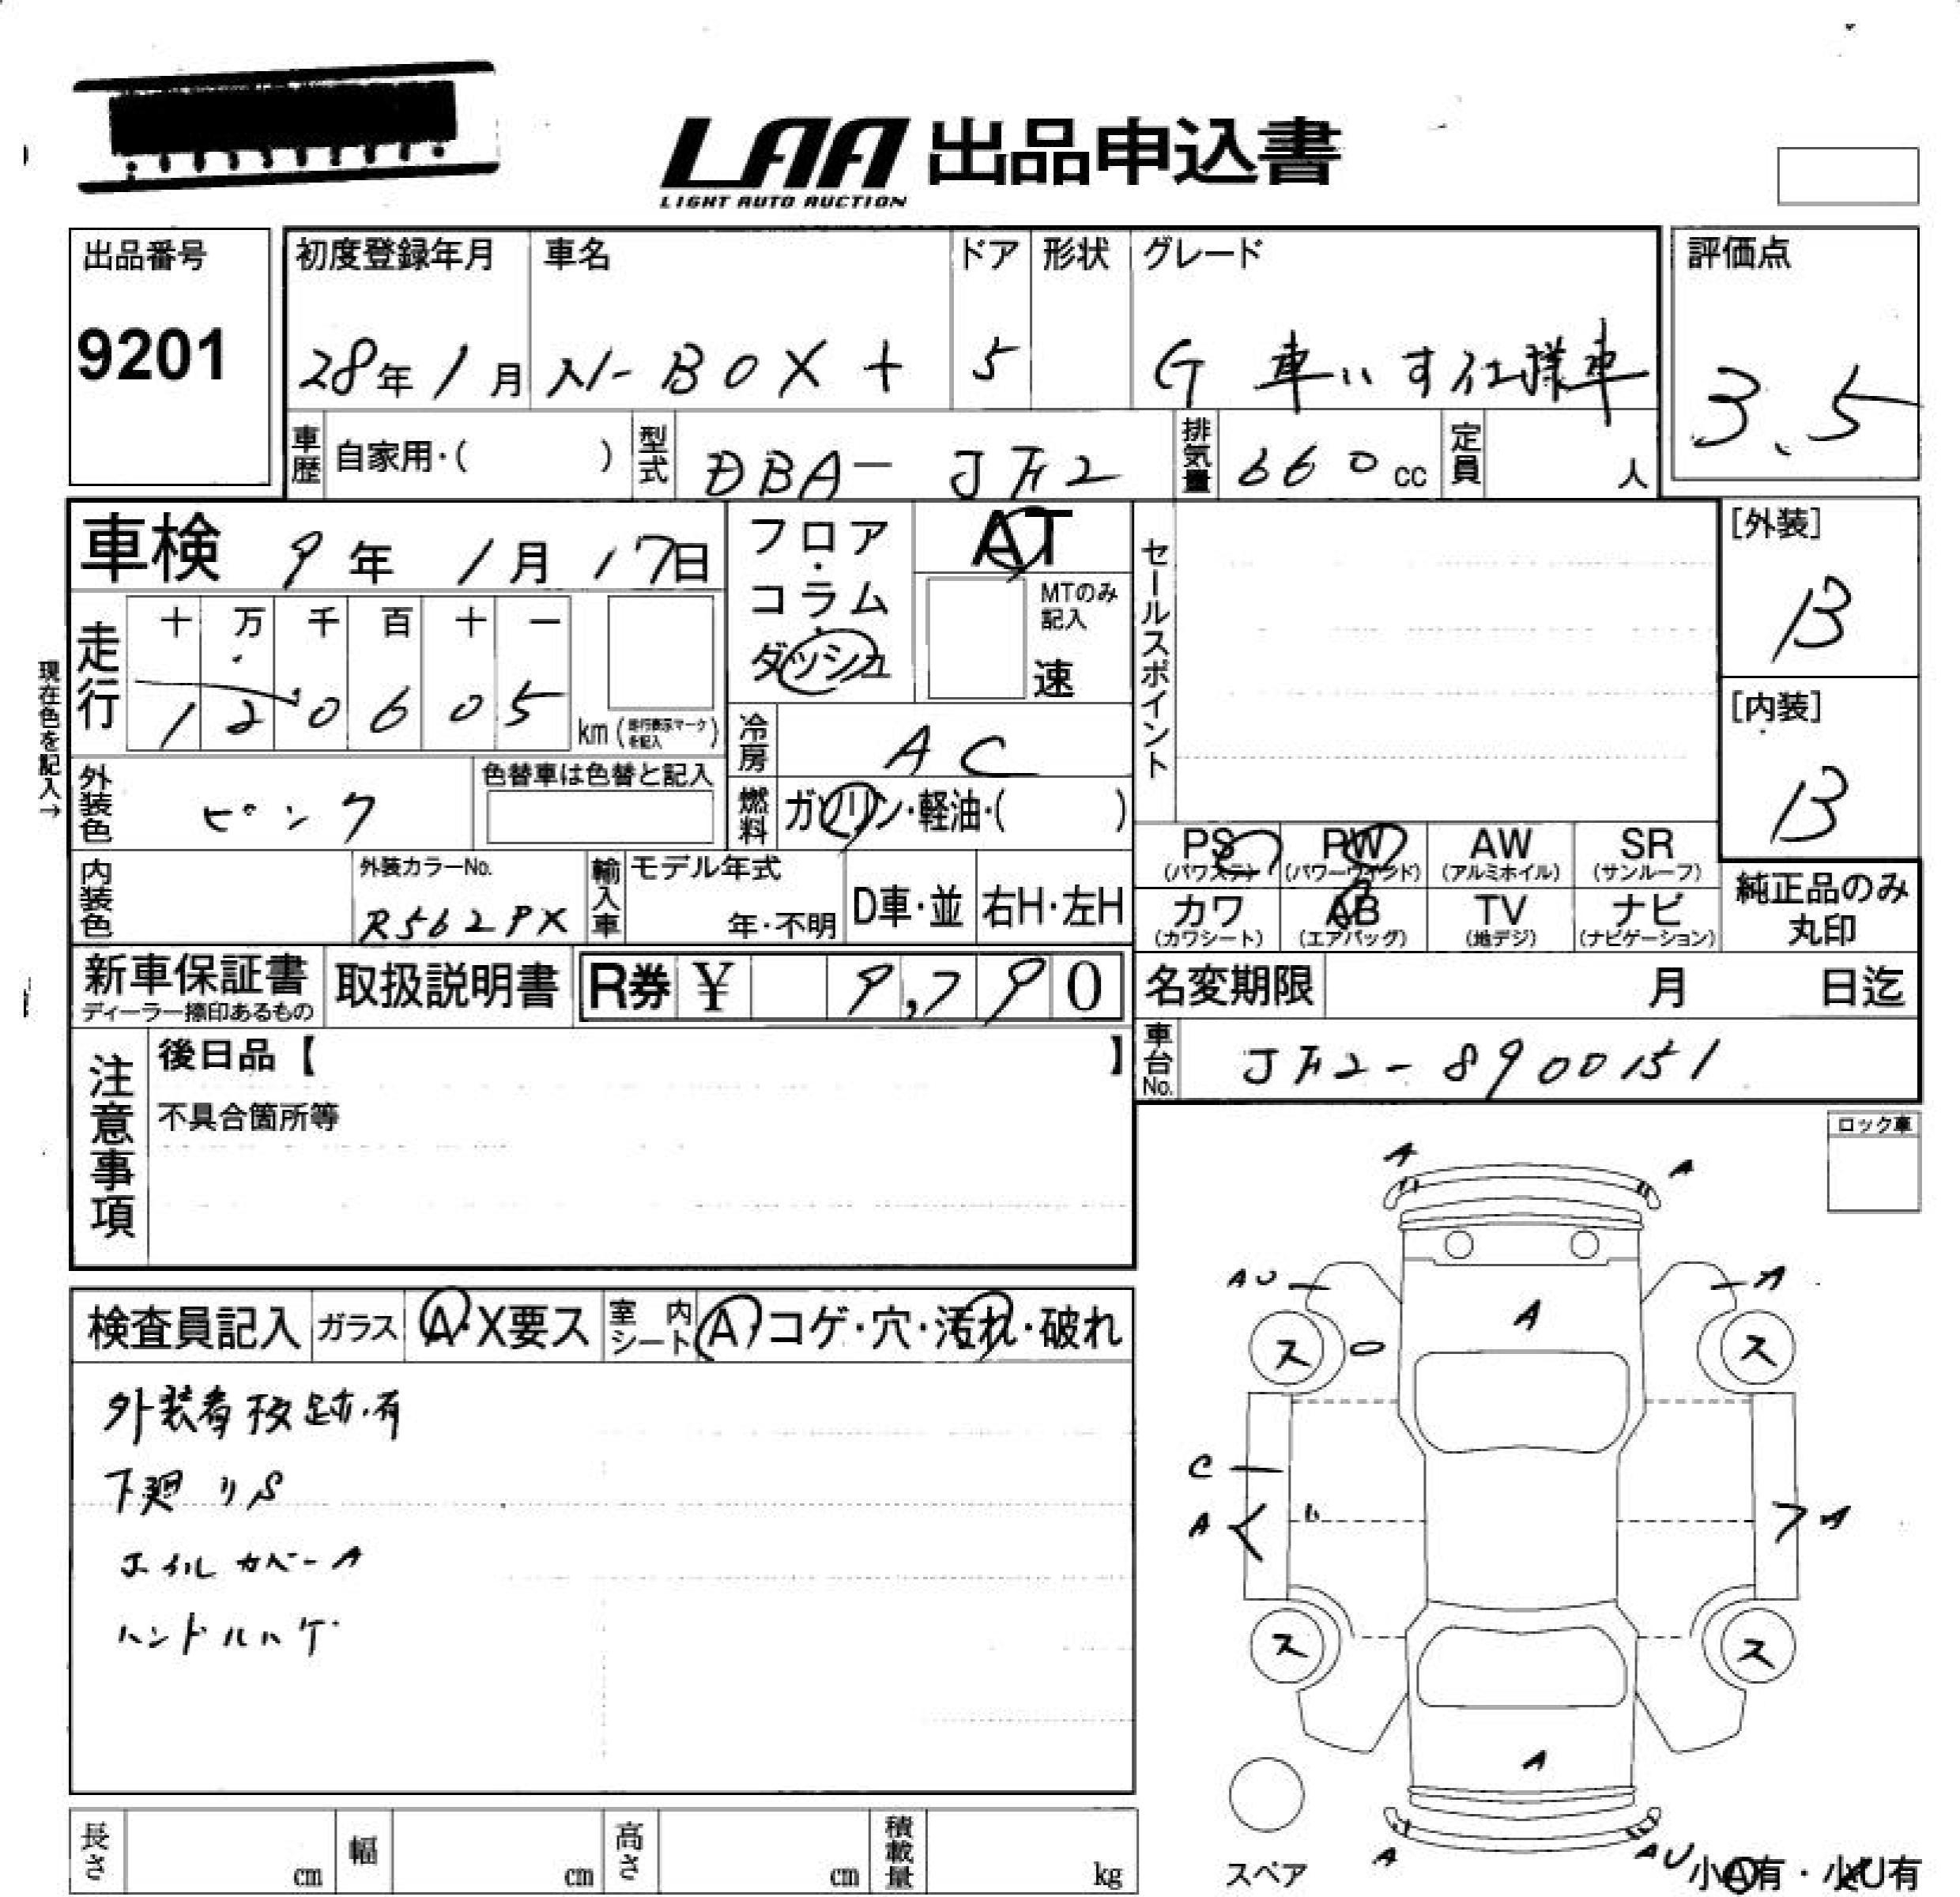 LAA 出品申込書
LIGHT AUTO AUCTION
出品番号
9201
初度登録年月 車名 ドア 形状 グレード
28年 1月 N-BOX+ 5 G 車いす仕様車
評価点
3.5
車歴 自家用・( ) 型式 DBA-JF2 排気量 660cc 定員 人
車検 9年 1月 17日
フロア・コラム・ダッシュ
AT
MTのみ記入
速
セールスポイント
[外装]
B
[内装]
B
現在色を記入→
走行 十 万 千 百 十 一
1 2 0 6 0 5 km (走行表示マークを記入)
冷房 AC
外装色 ピンク 色替車は色替と記入
燃料 ガソリン・軽油・( )
PS (パワステ) PW (パワーウインド) AW (アルミホイル) SR (サンルーフ)
カワ (カワシート) AB (エアバッグ) TV (地デジ) ナビ (ナビゲーション)
純正品のみ丸印
内装色 外装カラーNo. R562PX
輸入車 モデル年式 年・不明 D車・並 右H・左H
新車保証書 ディーラー捺印あるもの 取扱説明書 R券 ¥ 9,790
名変期限 月 日迄
車台No. JF2-8900151
注意事項
後日品【 】
不具合箇所等
ロック車
検査員記入 ガラス A・X要ス 室内シート A コゲ・穴・汚れ・破れ
外装看板跡有
下廻りS
ホイルカバーA
ハンドルハゲ
A A
AU A
A
ス ス
C
A A
ス ス
A
A AU
スペア
小A有・小U有
長さ cm 幅 cm 高さ cm 積載量 kg